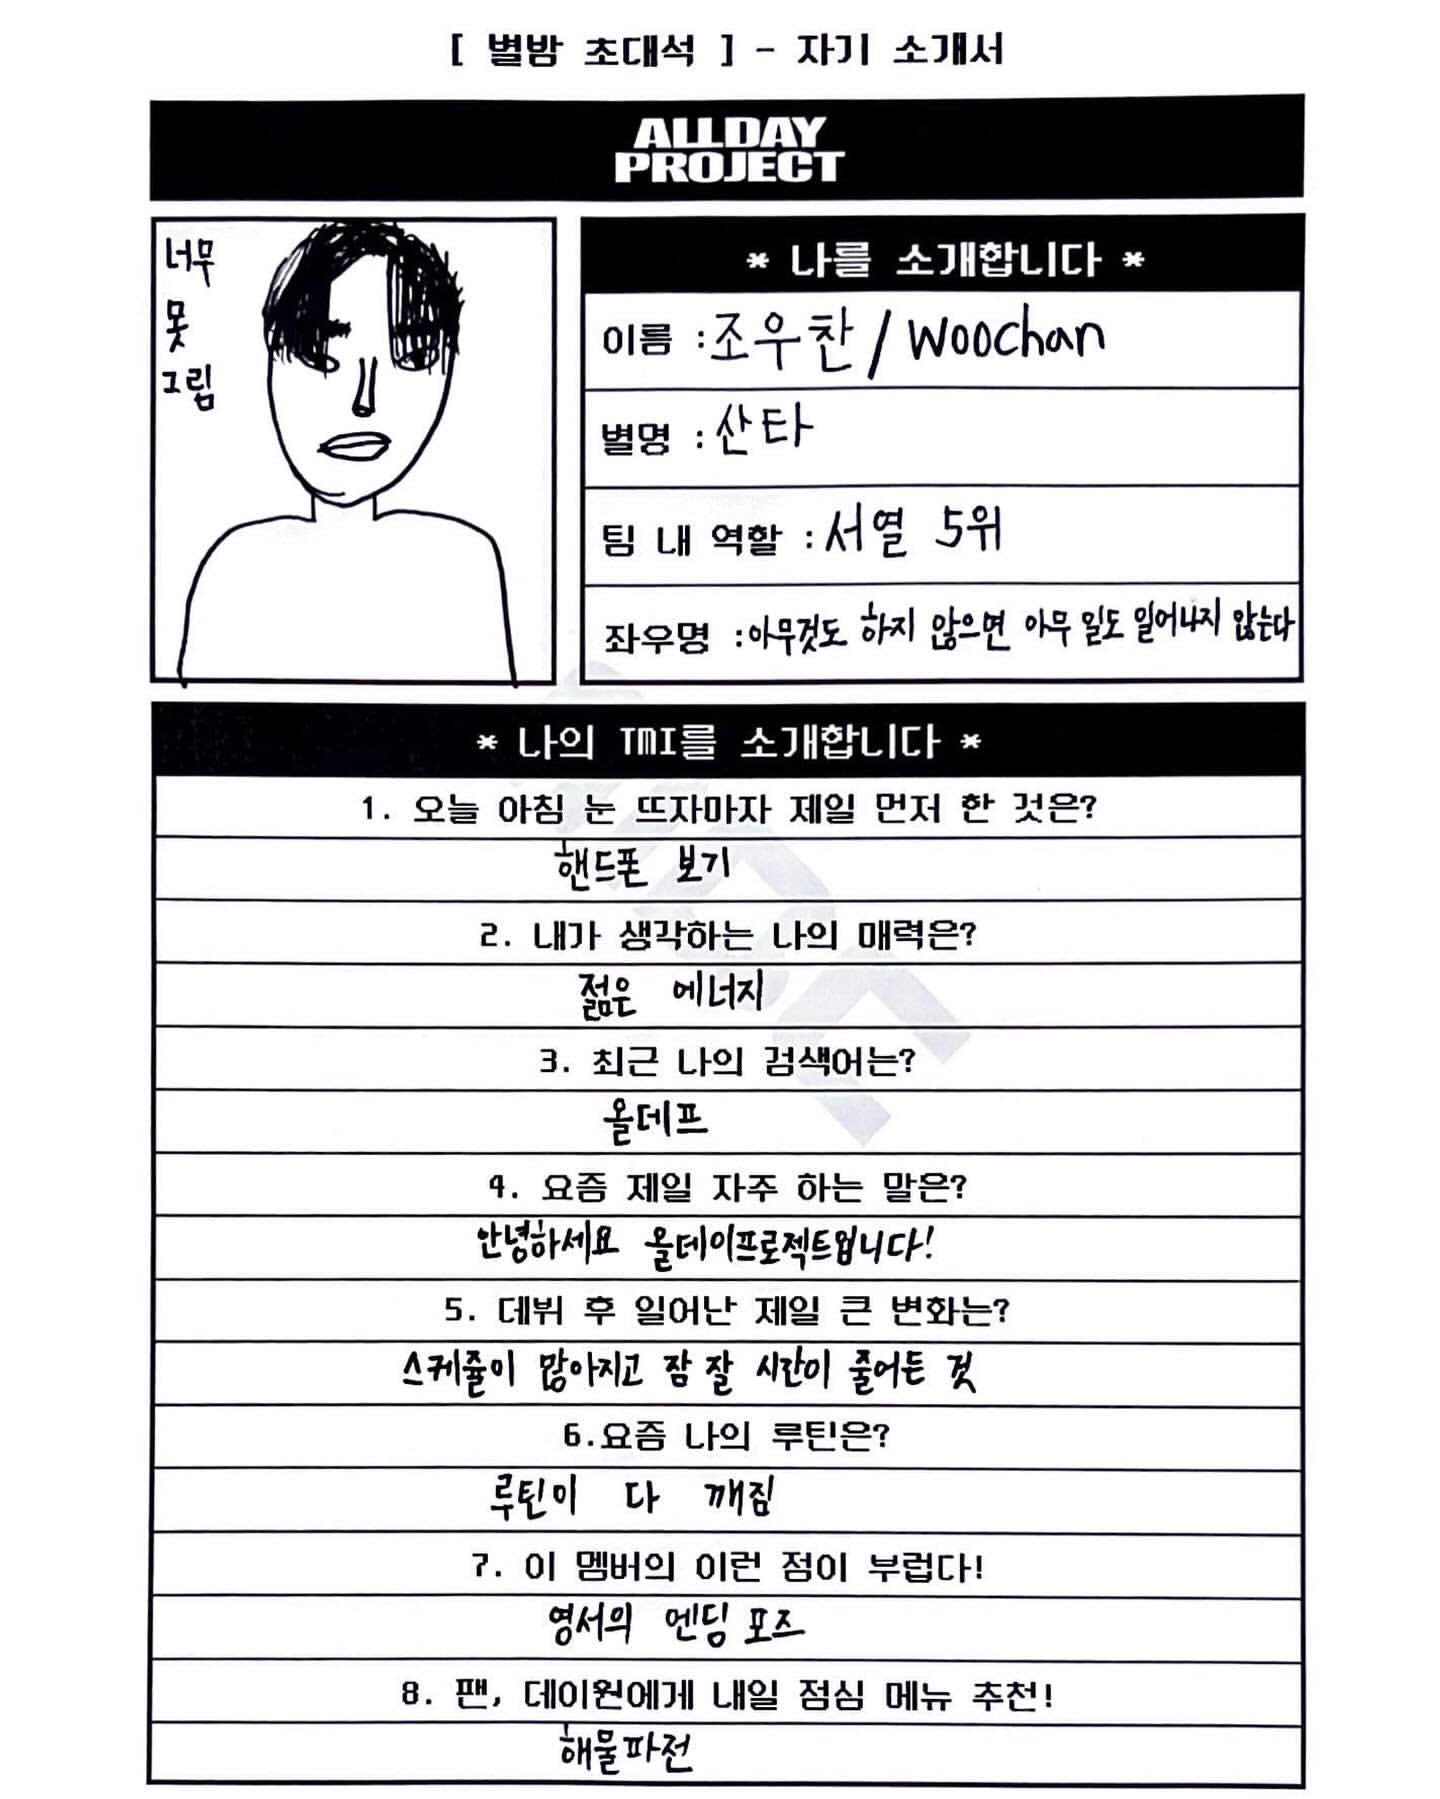 [ 별밤 초대석 ] - 자기 소개서
ALLDAY
PROJECT
너무
못
그림
* 나를 소개합니다 *
이름 : 조우찬 / woochan
별명 : 산타
팀 내 역할 : 서열 5위
좌우명 : 아무것도 하지 않으면 아무 일도 일어나지 않는다
* 나의 TMI를 소개합니다 *
1. 오늘 아침 눈 뜨자마자 제일 먼저 한 것은?
핸드폰 보기
2. 내가 생각하는 나의 매력은?
젊은 에너지
3. 최근 나의 검색어는?
올데프
4. 요즘 제일 자주 하는 말은?
안녕하세요 올데이프로젝트입니다!
5. 데뷔 후 일어난 제일 큰 변화는?
스케쥴이 많아지고 잠 잘 시간이 줄어든 것
6.요즘 나의 루틴은?
루틴이 다 깨짐
7. 이 멤버의 이런 점이 부럽다!
영서의 엔딩 포즈
8. 팬, 데이원에게 내일 점심 메뉴 추천!
해물파전